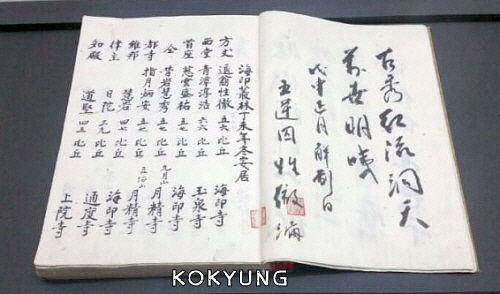 古秀紅流洞天
萬世明
戊申正月 解制日
五逆囚 性徹
海印叢林丁未年冬安居
方丈 退翁性徹 五六 比丘 海印寺
西堂 青潭淳浩 六六 比丘 玉泉寺
首座 慈雲盛祐 五七 比丘 海印寺
仝 岩慧秀 五七 比丘 九月山 月精寺
都寺 指月炳安 五七 比丘 五台山 月精寺
維那 慧岩 四七 比丘 海印寺
律主 日陀 三九 比丘 通度寺
知殿 道堅 四三 比丘 上院寺
KOKYUNG